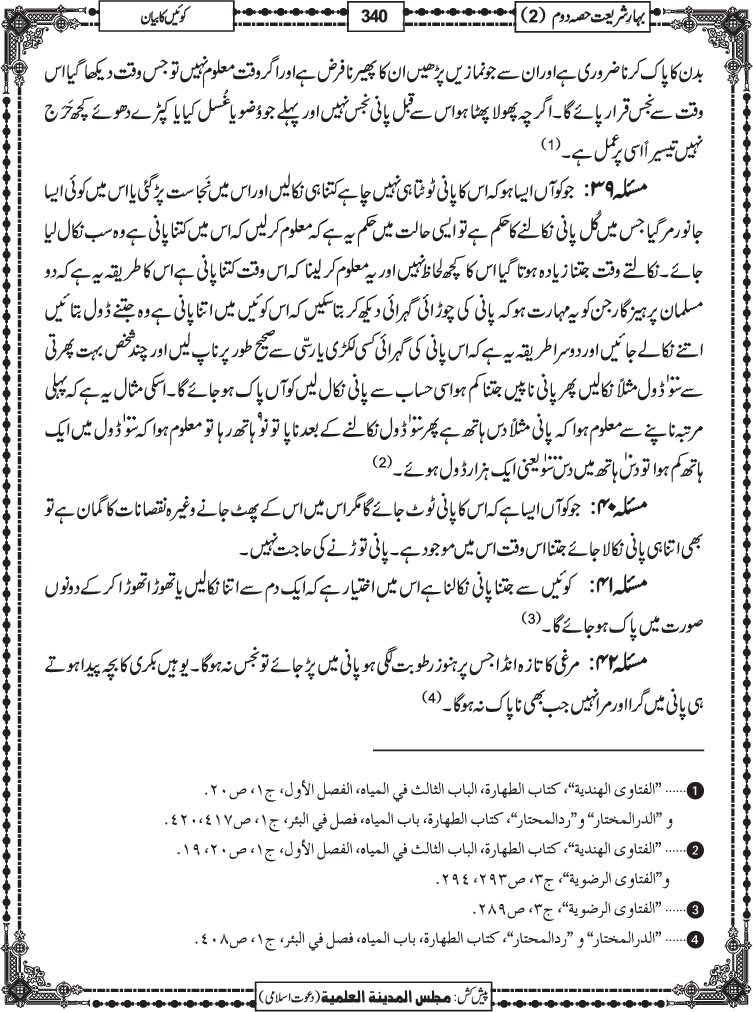 بہارِ شریعت حصہ دوم (2)
340
کوئیں کا بیان
بدن کا پاک کرنا ضروری ہے اور ان سے جو نمازیں پڑھیں ان کا پھیرنا فرض ہے اور اگر وقت معلوم نہیں تو جس وقت دیکھا گیا اس
وقت سے نجس قرار پائے گا۔ اگرچہ پھولا پھٹا ہو اس سے قبل پانی نجس نہیں اور پہلے جو وُضو یا غُسل کیا یا کپڑے دھوئے کچھ حَرَج
نہیں تیسیراً اسی پر عمل ہے۔ (1)
مسئلہ ۳۹: جو کوآں ایسا ہو کہ اس کا پانی ٹوٹتا ہی نہیں چاہے کتنا ہی نکالیں اور اس میں نَجاست پڑ گئی یا اس میں کوئی ایسا
جانور مر گیا جس میں کُل پانی نکالنے کا حکم ہے تو ایسی حالت میں حکم یہ ہے کہ معلوم کر لیں کہ اس میں کتنا پانی ہے وہ سب نکال لیا
جائے۔ نکالتے وقت جتنا زیادہ ہوتا گیا اس کا کچھ لحاظ نہیں اور یہ معلوم کر لینا کہ اس وقت کتنا پانی ہے اس کا طریقہ یہ ہے کہ دو
مسلمان پرہیزگار جن کو یہ مہارت ہو کہ پانی کی چوڑائی گہرائی دیکھ کر بتا سکیں کہ اس کوئیں میں اتنا پانی ہے وہ جتنے ڈول بتائیں
اتنے نکالے جائیں اور دوسرا طریقہ یہ ہے کہ اس پانی کی گہرائی کسی لکڑی یا رسّی سے صحیح طور پر ناپ لیں اور چند شخص بہت پھرتی
سے سو۱۰۰ ڈول مثلاً نکالیں پھر پانی ناپیں جتنا کم ہو اسی حساب سے پانی نکال لیں کوآں پاک ہو جائے گا۔ اسکی مثال یہ ہے کہ پہلی
مرتبہ ناپنے سے معلوم ہوا کہ پانی مثلاً دس ہاتھ ہے پھر سو۱۰۰ ڈول نکالنے کے بعد ناپا تو نو۹ ہاتھ رہا تو معلوم ہوا کہ سو۱۰۰ ڈول میں ایک
ہاتھ کم ہوا تو دس۱۰ ہاتھ میں دس سو یعنی ایک ہزار ڈول ہوئے۔ (2)
مسئلہ ۴۰: جو کوآں ایسا ہے کہ اس کا پانی ٹوٹ جائے گا مگر اس میں اس کے پھٹ جانے وغیرہ نقصانات کا گمان ہے تو
بھی اتنا ہی پانی نکالا جائے جتنا اس وقت اس میں موجود ہے۔ پانی توڑنے کی حاجت نہیں۔
مسئلہ ۴۱: کوئیں سے جتنا پانی نکالنا ہے اس میں اختیار ہے کہ ایک دم سے اتنا نکالیں یا تھوڑا تھوڑا کر کے دونوں
صورت میں پاک ہو جائے گا۔ (3)
مسئلہ ۴۲: مرغی کا تازہ انڈا جس پر ہنوز رطوبت لگی ہو پانی میں پڑ جائے تو نجس نہ ہوگا۔ یوہیں بکری کا بچہ پیدا ہوتے
ہی پانی میں گرا اور مرا نہیں جب بھی ناپاک نہ ہوگا۔ (4)
1 ...... "الفتاوی الھندیة"، کتاب الطھارة، الباب الثالث في المیاہ، الفصل الأول، ج۱، ص۲۰.
و "الدرالمختار" و"ردالمحتار"، کتاب الطھارة، باب المیاہ، فصل في البئر، ج۱، ص۴۱۷،۴۲۰.
2 ...... "الفتاوی الھندیة"، کتاب الطھارة، الباب الثالث في المیاہ، الفصل الأول، ج۱، ص۲۰، ۱۹.
و"الفتاوی الرضویة"، ج۳، ص۲۹۳، ۲۹۴.
3 ...... "الفتاوی الرضویة"، ج۳، ص۲۸۹.
4 ...... "الدرالمختار" و "ردالمحتار"، کتاب الطھارة، باب المیاہ، فصل في البئر، ج۱، ص۴۰۸.
پیش کش: مجلس المدینة العلمیة (دعوت اسلامی)